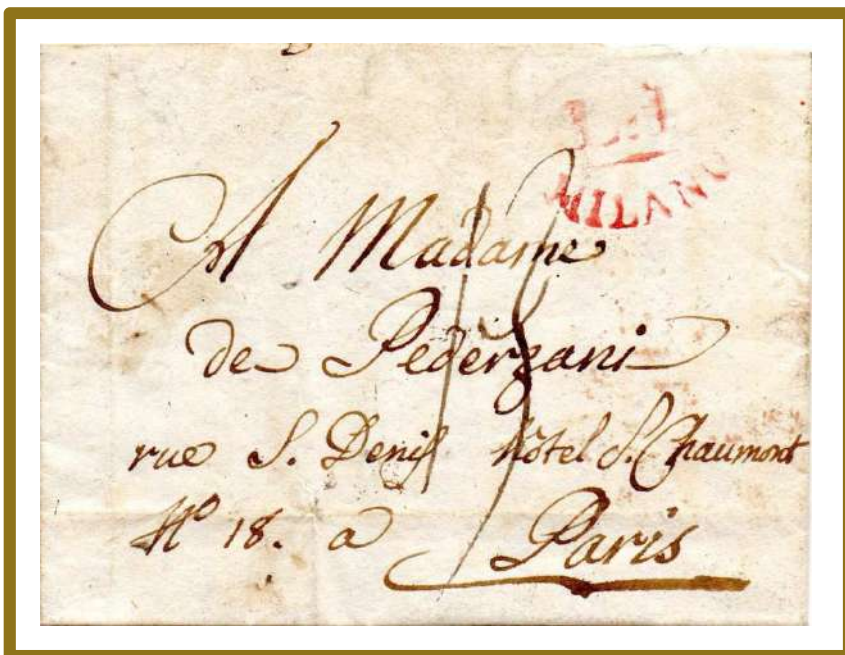 MILANO
A Madame
de Pederzani
rue S. Denis hôtel S. Chaumont
N.º 18. a Paris